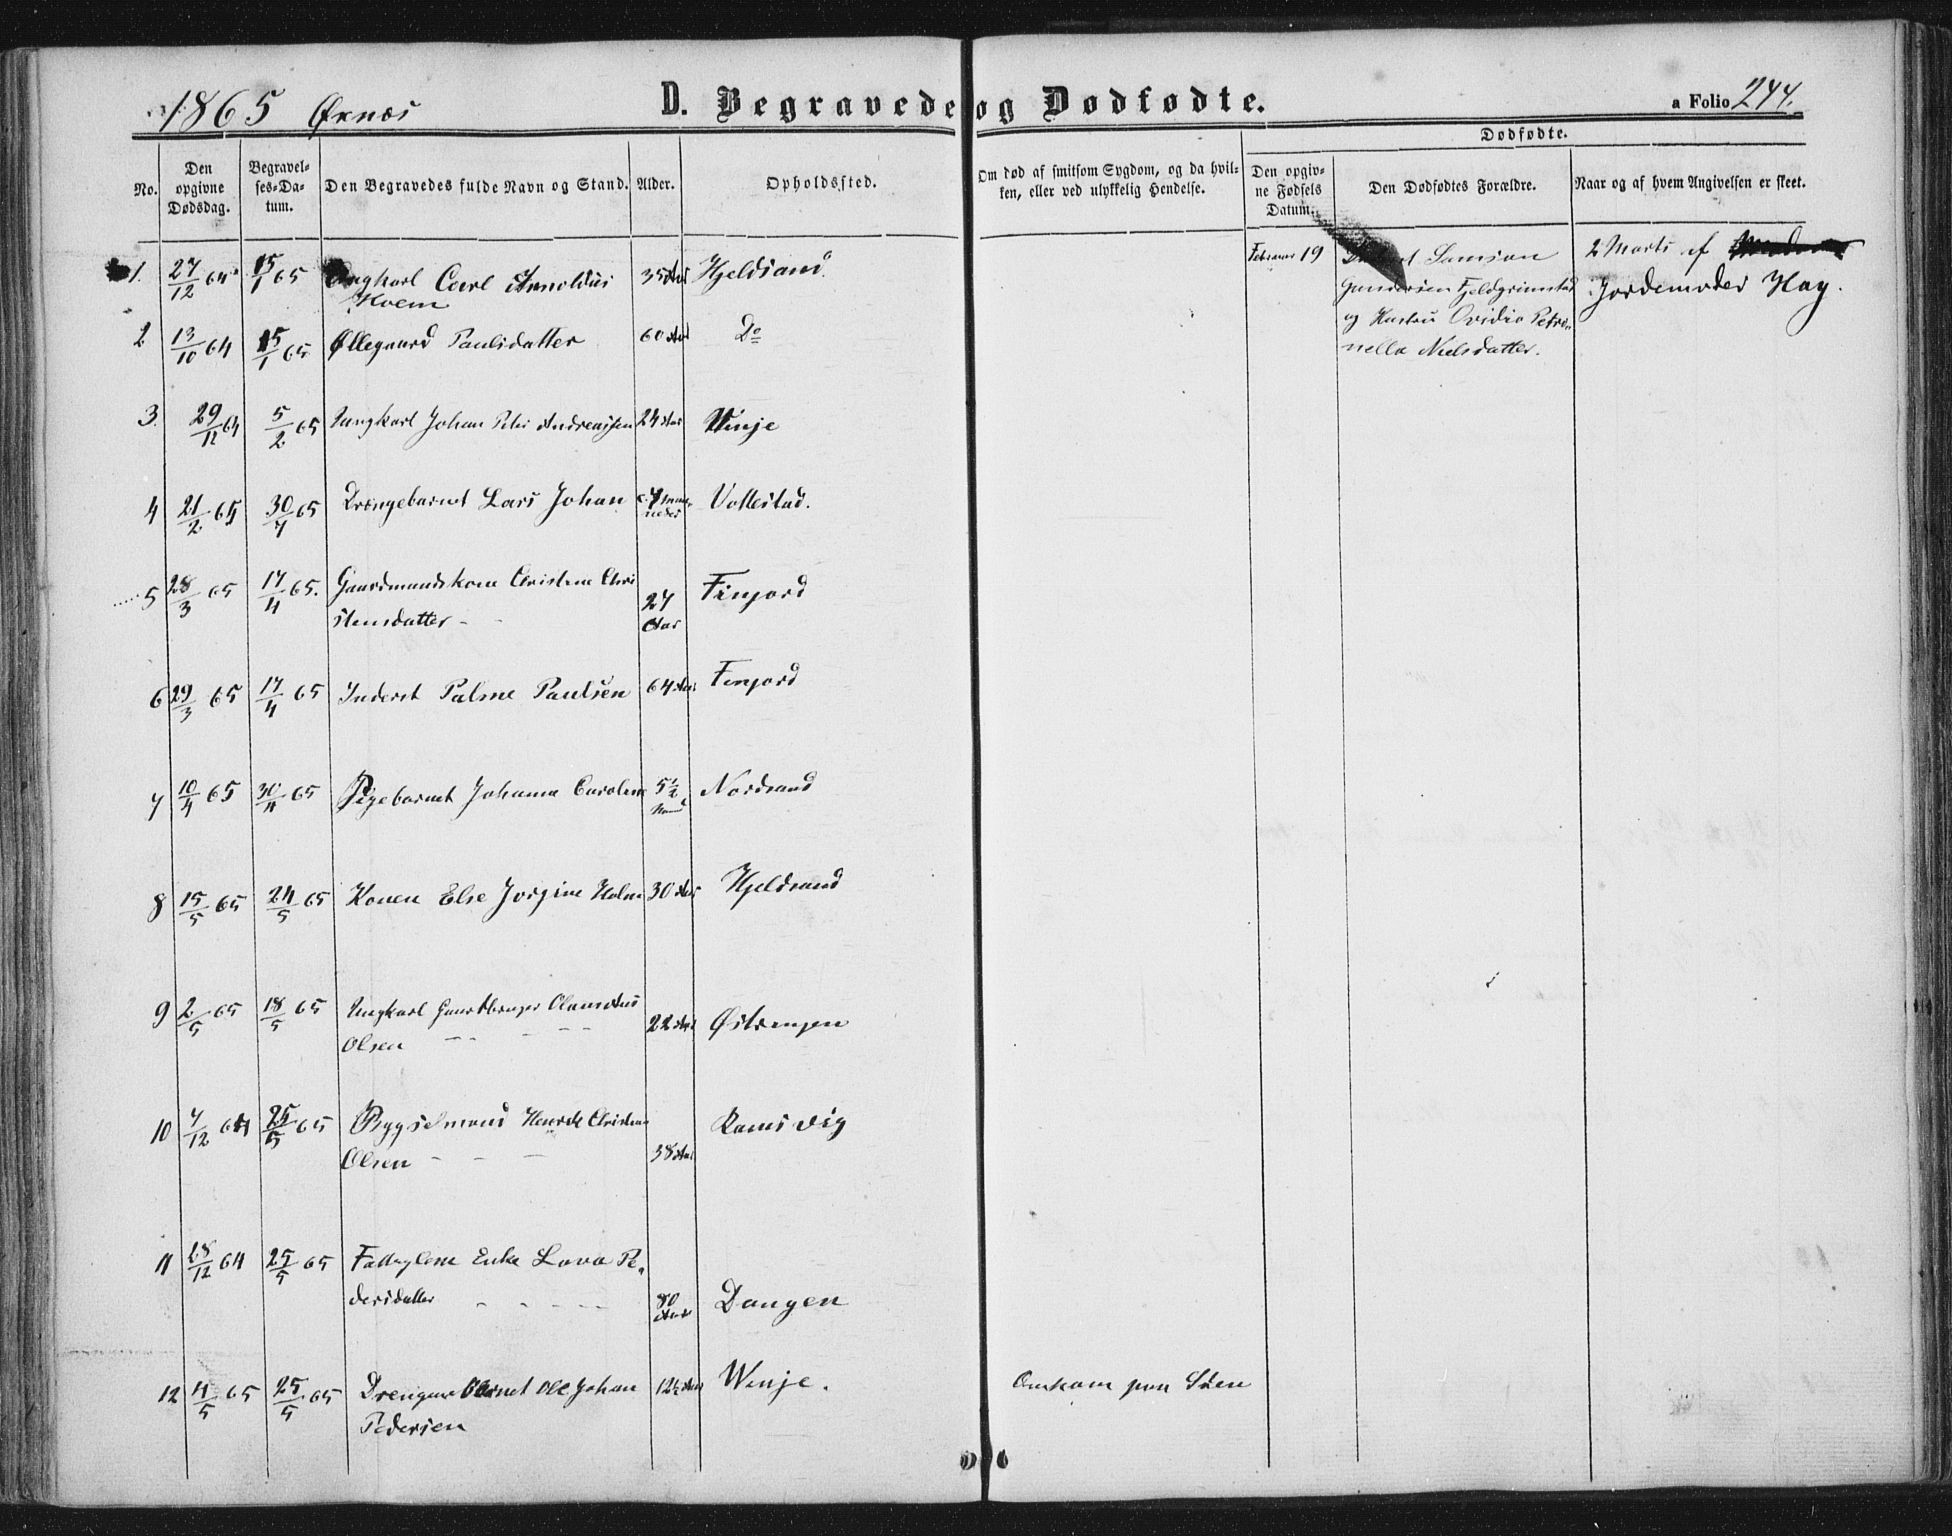 1865 Øxnæs
D. Begravede og Dødfødte.
a Folio 244.
Dødfødte.
No.
Den opgivne Dødsdag.
Begravelses-Datum.
Den Begravedes fulde Navn og Stand.
Alder.
Opholdssted.
Om død af smitsom Sygdom, og da hvilken, eller ved ulykkelig Hendelse.
Den opgivne Fødsels Datum.
Den Dødfødtes Forældre.
Naar og af hvem Angivelsen er skeet.
1. 27/12 64 15/1 65 Ungkarl Carl Arnoldus 35 Aar Hjeldsand.
Hoem
Februar 19 Samson
Gundersen Fjeldgrimstad
og Hustru Ovidia Petro-
nella Nielsdatter.
2 Marts af
Jordemoder Hay.
2 13/10 64 15/1 65 Øllegaard Paulsdatter 60 Aar Do
3. 29/11 64 5/2 65 Ungkarl Johan Peter Andreassen 24 Aar Vinje
4 21/2 65 30/7 65 Drengebarnet Lars Johan 4 Maa-
neder Vottestad.
5 28/3 65 17/4 65. Gaardmandskone Christine Chri
stensdatter 27
Aar Finjord
6 29/3 65 17/4 65 Inderst Palme Paulsen 64 Aar Finjord
7 10/4 65 30/11 65 Pigebarnet Johanna Caroline 5 1/2
Maand Nordsand
8 15/5 65 24/5 65 Konen Else Jorgine Holm 30 Aar Hjeldsand
9 2/5 65 18/5 65 Ungkarl Gaardbruger
Olsen 22 Aar Østrengen
10 7/12 64 25/5 65 Bygselmand Henrik Christian
Olsen 38 Aar Ramsvig
11 28/12 64 25/5 65 Fattiglem Enke Lava Pe-
dersdatter 80
Aar Dangen
12 4/5 65 25/5 65 Drengebarnet Ole Johan 12 1/2 Aar Winje. Omkom paa Søen
Pedersen